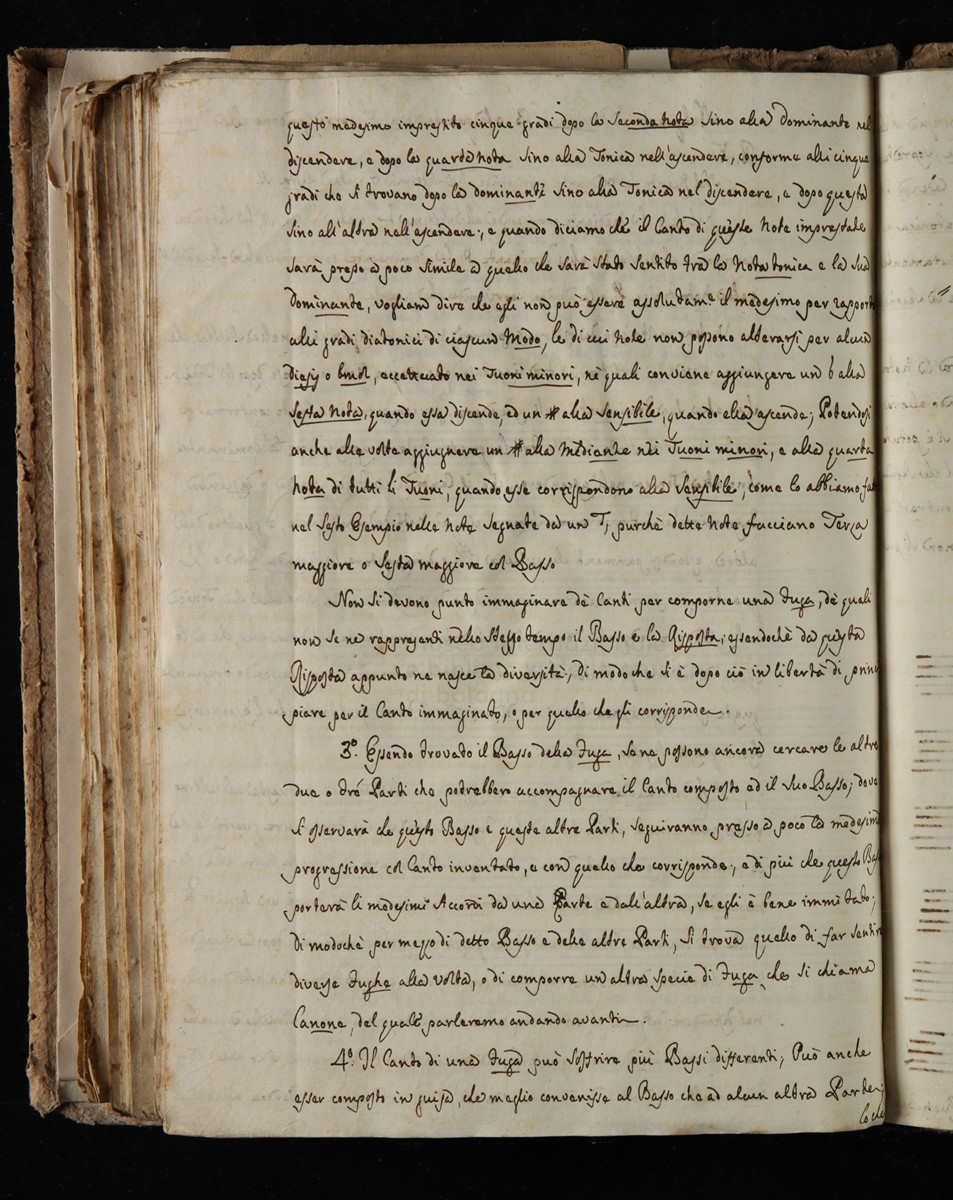 questo medesimo imprestito cinque gradi dopo la Seconda Nota sino alla dominante nel
discendere, e dopo la quarta Nota sino alla Tonica nell'ascendere, conforme alli cinque
gradi che si trovano dopo la dominante sino alla Tonica nel discendere, e dopo questa
sino all'altra nell'ascendere; e quando diciamo che il Canto di queste Note imprestate
sarà presso a poco simile a quello che sarà stato sentito tra la Nota tonica e la sua
dominante, vogliam dire che egli non può essere assolutam.e il medesimo per rapporto
alli gradi diatonici di ciascun Modo, le di cui Note non possono alterarsi per alcun
Diesy o bmol, eccettuato nei Tuoni minori, nè quali conviene aggiungere un b alla
Sesta Nota, quando essa discende, ed un # alla Sensibile, quando ella ascende; Potendosi
anche alle volte aggiugnere un # alla Mediante nei Tuoni minori, e alla quarta
Nota di tutti li Tuoni, quando esse corrispondono alla Sensibile, come lo abbiamo fat
nel Sesto Esempio nelle Note segnate da un T, purchè dette Note facciano Terza
maggiore o Sesta maggiore col Basso
Non si devono punto immaginare dè Canti per comporne una Fuga, dè quali
non se ne rappresenti nello stesso tempo il Basso e la Risposta; essendochè da questa
Risposta appunto ne nasce la diversità, di modo che si è dopo ciò in libertà di prin
piare per il Canto immaginato, o per quello che gli corrisponde.
3.o Essendo trovato il Basso della Fuga, se ne possono ancora cercare le altre
due o trè Parti che potrebbero accompagnare il Canto composto ed il suo Basso; dove
si osservarà che questo Basso e queste altre Parti, seguiranno presso a poco la medesim
progressione col Canto inventato, e con quello che corrisponde; e di più che questo Bas
porterà li medesimi Accordi da una Parte e dall'altra, se egli è bene immitato;
di modochè per mezzo di detto Basso e delle altre Parti, si trova quello di far sentir
diverse Fughe alla volta, o di comporre un'altra specie di Fuga che si chiama
Canone, del quale parleremo andando avanti.
4.o Il Canto di una Fuga può soffrire più Bassi differenti; Può anche
esser composto in guisa, che meglio convenisse al Basso che ad alcun altra Parte;
lo che